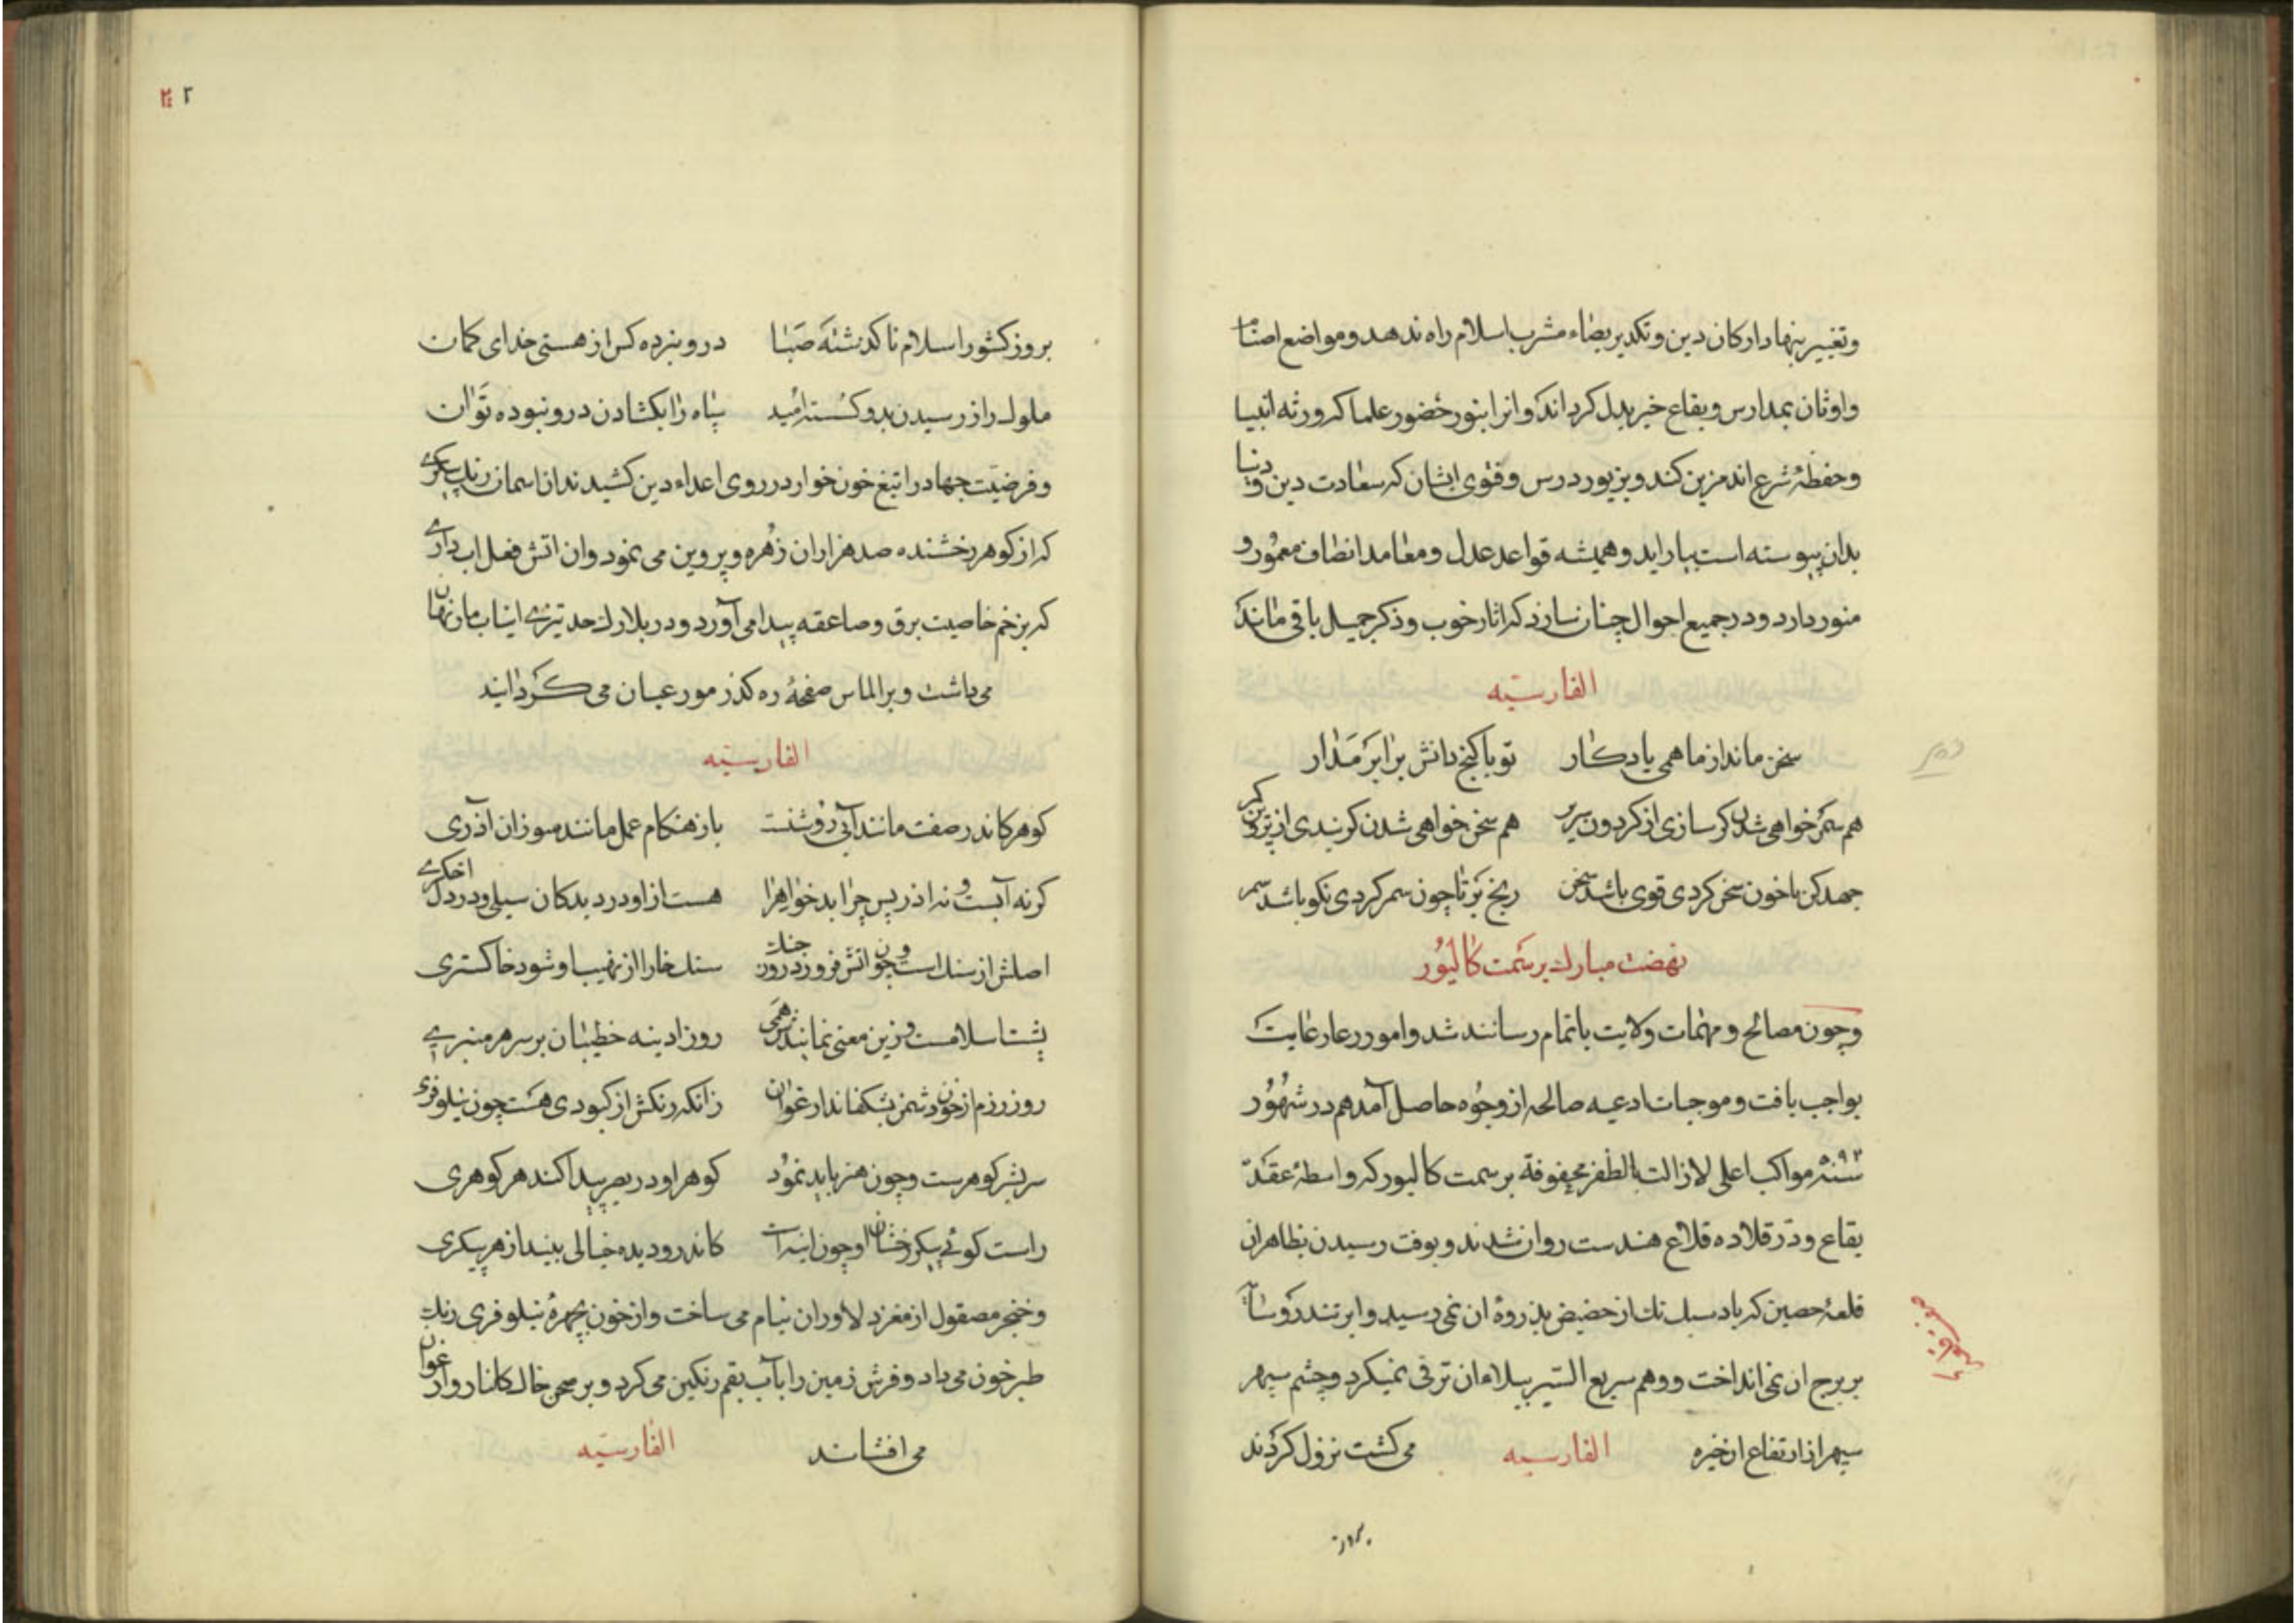 وتغییر بنهاد ارکان دین و تکدیر بصفاء مشرب اسلام راه ندهد و مواضع اصنام
واوثان بمدارس و بقاع خیر بدل کرداند و انرا بنور حضور علما که ورثه انبیا
وحفظۀ شرع اند مزین کند و بزیور درس و فتوی ایشان که سعادت دین و دنیا
بدان پیوسته است بیاراید و همیشه قواعد عدل و معاهد انصاف معمور و
منور دارد و در جمیع احوال چنان سازد که اثار خوب و ذکر جمیل باقی ماند که
الفارسیه
سخن ماند از ما همی یادکار تو با کنج دانش برابر مدار
هم سمر خواهی شدن کر سازی از کردون سریر هم سخن خواهی شدن کر بندی از پروین کمر
جهد کن تا خون سخن کردی قوی باشد سخن رنج بر تا چون سمر کردی نکو باشد سمر
نهضت مبارک بر سمت کالیور
وچون مصالح و مهمات ولایت باتمام رسانند شد و امور رعا رعایت
بواجب یافت و موجبات ادعیه صالحه از وجوه حاصل آمد هم در شهور
سنه ۵۹۲ مواکب اعلی لازالت بالظفر محفوفة بر سمت کالیور که واسطۀ عقد
بقاع و در قلاده قلاع هندست روان شدند و بوقت رسیدن بظاهر ان
قلعۀ حصین که باد سبک تک از حضیض بذروۀ ان نمی رسید و ابر تندرو سایه
بر برج ان نمی انداخت و وهم سریع السیر ببالاء ان ترقی نمیکرد و چشم سپهر
سپهر از ارتفاع ان خیره الفارسیه می کشت نزول کردند
بروز
۲
بروز کشور اسلام ناکدشته صبا درو نبرده کس از هستی خدای کمان
ملوک را ز رسیدن بدو کسسته امید سپاه را بکشادن درو نبوده توان
و فرضیت جهاد را تیغ خون خوار در روی اعداء دین کشیدند ان اسمان رنک پیکری
که از کوهر رخشنده صد هزاران زهره و پروین می نمود و ان اتش فعل اب داری
که بزخم خاصیت برق و صاعقه پیدا می آورد و در بلارک حد تیزی انیاب مار نهان
می داشت و بر الماس صفحۀ ره کذر مور عیان می کردانید
الفارسیه
کوهر کاندر صفت مانند آبی روشنست باز هنکام عمل مانند سوزان آذری
کر نه آبست و نه اذر پس چرا بدخواه را هست از او در دیدکان سیلی و در دل اخکری
اصلش از سنک است و چون اتش فروزد روز جنک سنک خارا از نهیب او شود خاکستری
پشت اسلامست و زین معنی نمایندش همی روز ادینه خطیبان بر سر هر منبری
روز رزم از خون دشمن بشکفاند ارغوان زانکه رنکش از کبودی هست چون نیلوفری
سر بسر کوهرست و چون هنر باید نمود کوهر او در بصر پیدا کند هر کوهری
راست کوئی پیکر رخشان او چون اینه است کاندرو دیده خیالی بیند از هر پیکری
و خنجر مصقول از مغز دلاوران نیام می ساخت و از خون چهرۀ نیلوفری رنک
طبرخون می داد و فرش زمین را بآب بقم رنکین می کرد و بر صحن خاک کلنار و ارغوان
می افشاند الفارسیه